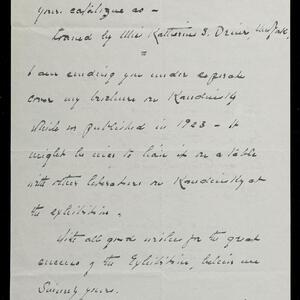 your catalogue as —
Loaned by Miss Katherine S. Dreier, New York.
=
I am sending you under separate
cover my brochure on Kandinsky
which was published in 1923 — It
might be nice to have it on a table
with other literature on Kandinsky at
the exhibition.
With all good wishes for the great
success of the Exhibition, believe me
Sincerely yours.